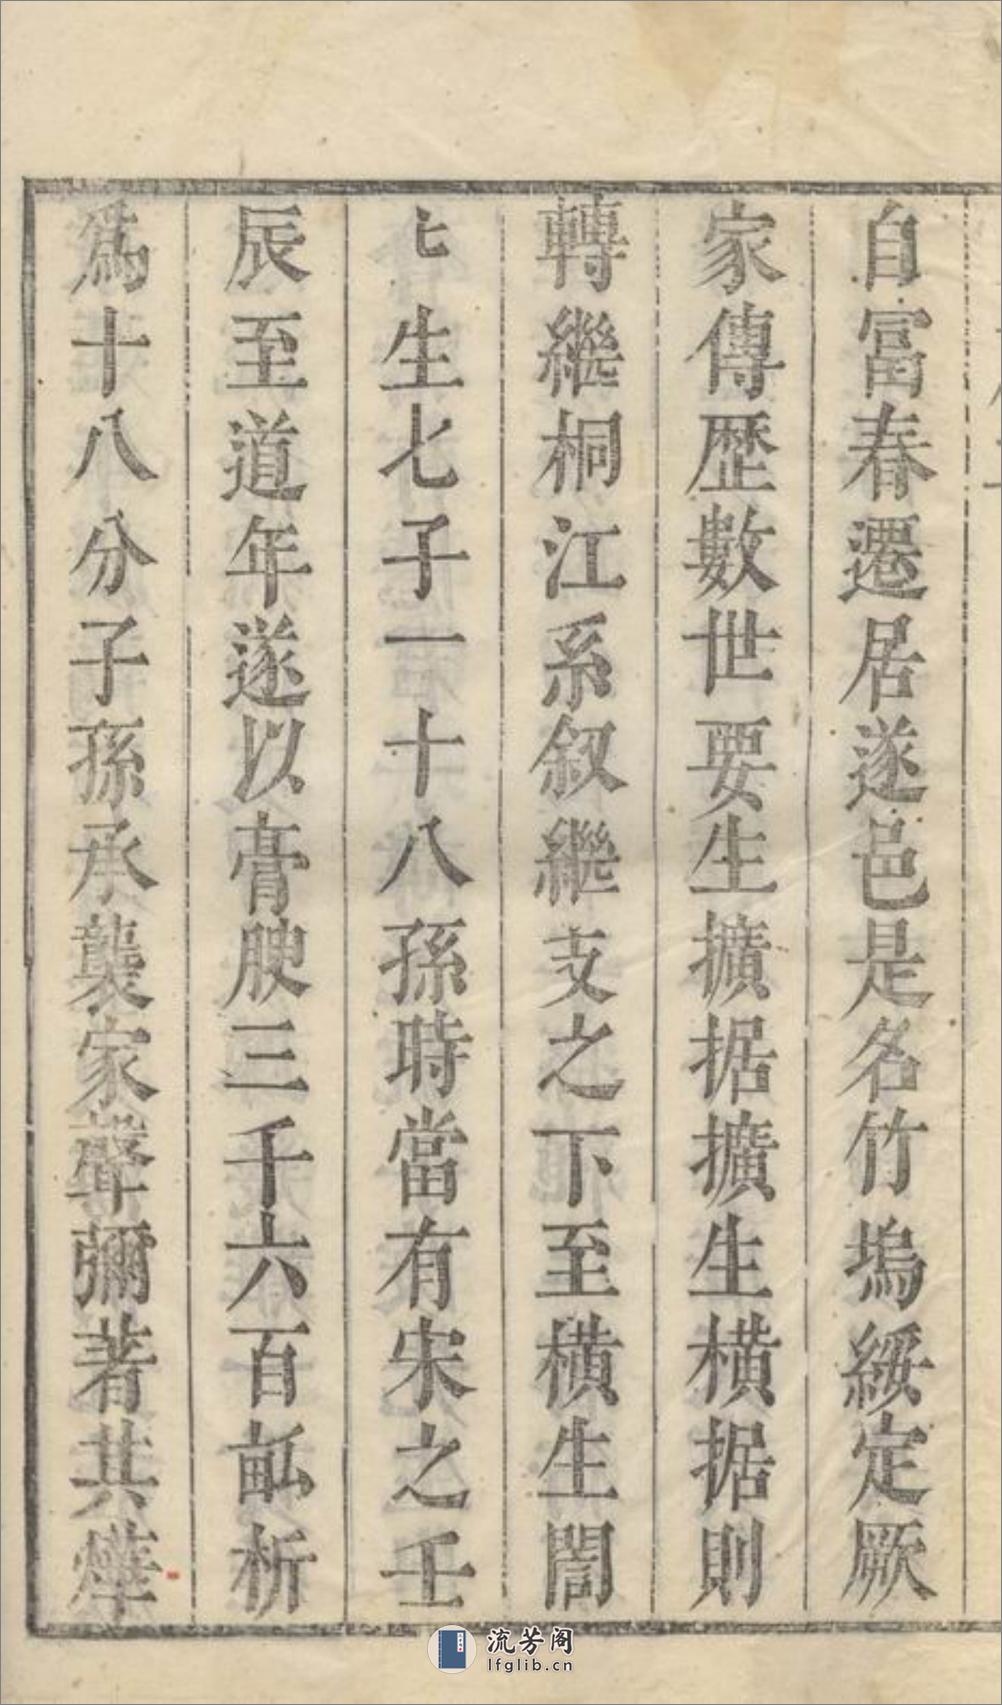 自富春遷居遂邑是名竹塢綏定厥
家傳歴數世要生擴据擴生橫据則
轉繼桐江系叙繼支之下至橫生誾
七生七子一十八孫時當有宋之壬
辰至道年遂以膏腴三千六百畆析
爲十八分子孫承襲家聲彌著其燁
流芳阁
lfglib.cn